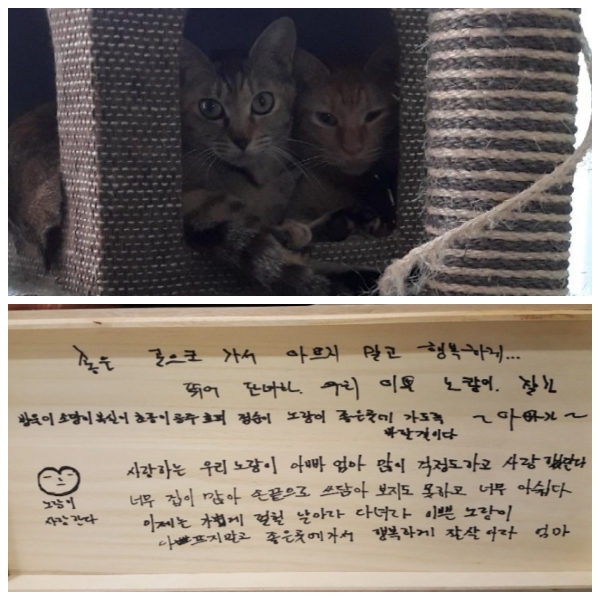 좋은 곳으로 가서 아프지 말고 행복하게...
뛰어 다녀라. 우리 이쁜 노랑이. 잘가
노랑이 좋은곳에 가도록 ~아빠가~
바란것이다
사랑하는 우리 노랑이 아빠 엄마 많이 걱정도하고 사랑
너무 집이 많아 손끝으로 쓰담아 보지도 못하고 너무 아쉽다
노랑이
사랑한다
이제는 가볍게 펄펄 날아라 다녀라 이쁜 노랑이
아프지말고 좋은곳에가서 행복하게 잘살아라 엄마